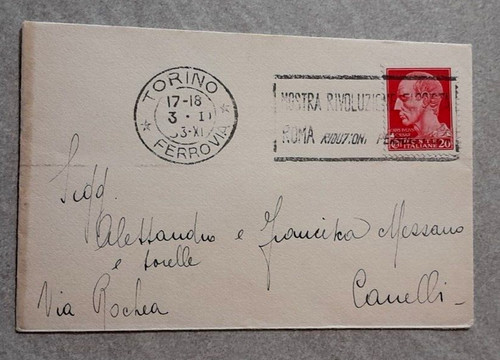 TORINO
17-18
3 · II
33·XI
FERROVIA
MOSTRA RIVOLUZIONE
ROMA RIDUZIONI FERR
POSTE ITALIANE 20
Sigg.
Alessandro e Francesca Messano
e sorelle
Via Rochea
Canelli